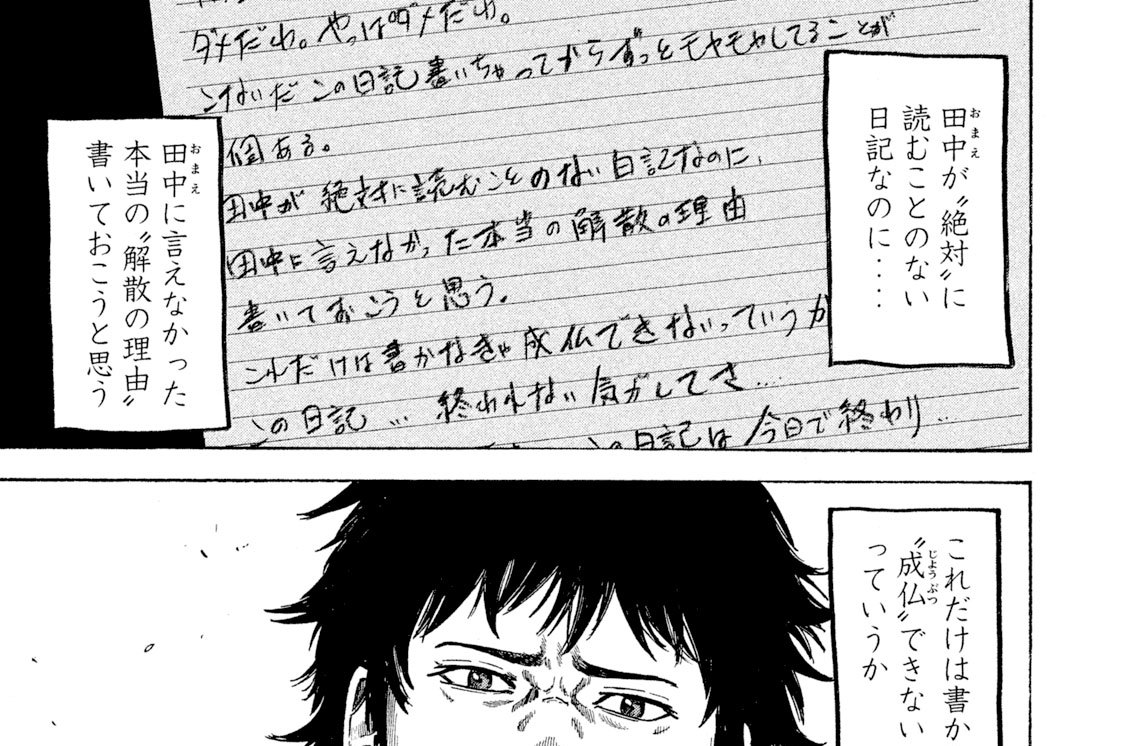 ダメだわ。やっぱダメだわ。
こないだこの日記書いちゃってからずっとモヤモヤしてることが
個ある。
田中が絶対に読むことのない日記なのに、
田中に言えなかった本当の解散の理由
書いておこうと思う。
これだけは書かなきゃ成仏できないっていうか
この日記…終われない気がしてさ…
この日記は今日で終わり…
田中が〝絶対〟に
おまえ
読むことのない
日記なのに‥‥
田中に言えなかった
おまえ
本当の〝解散の理由〟
書いておこうと思う
これだけは書か
〝成仏〟できない
じょうぶつ
っていうか